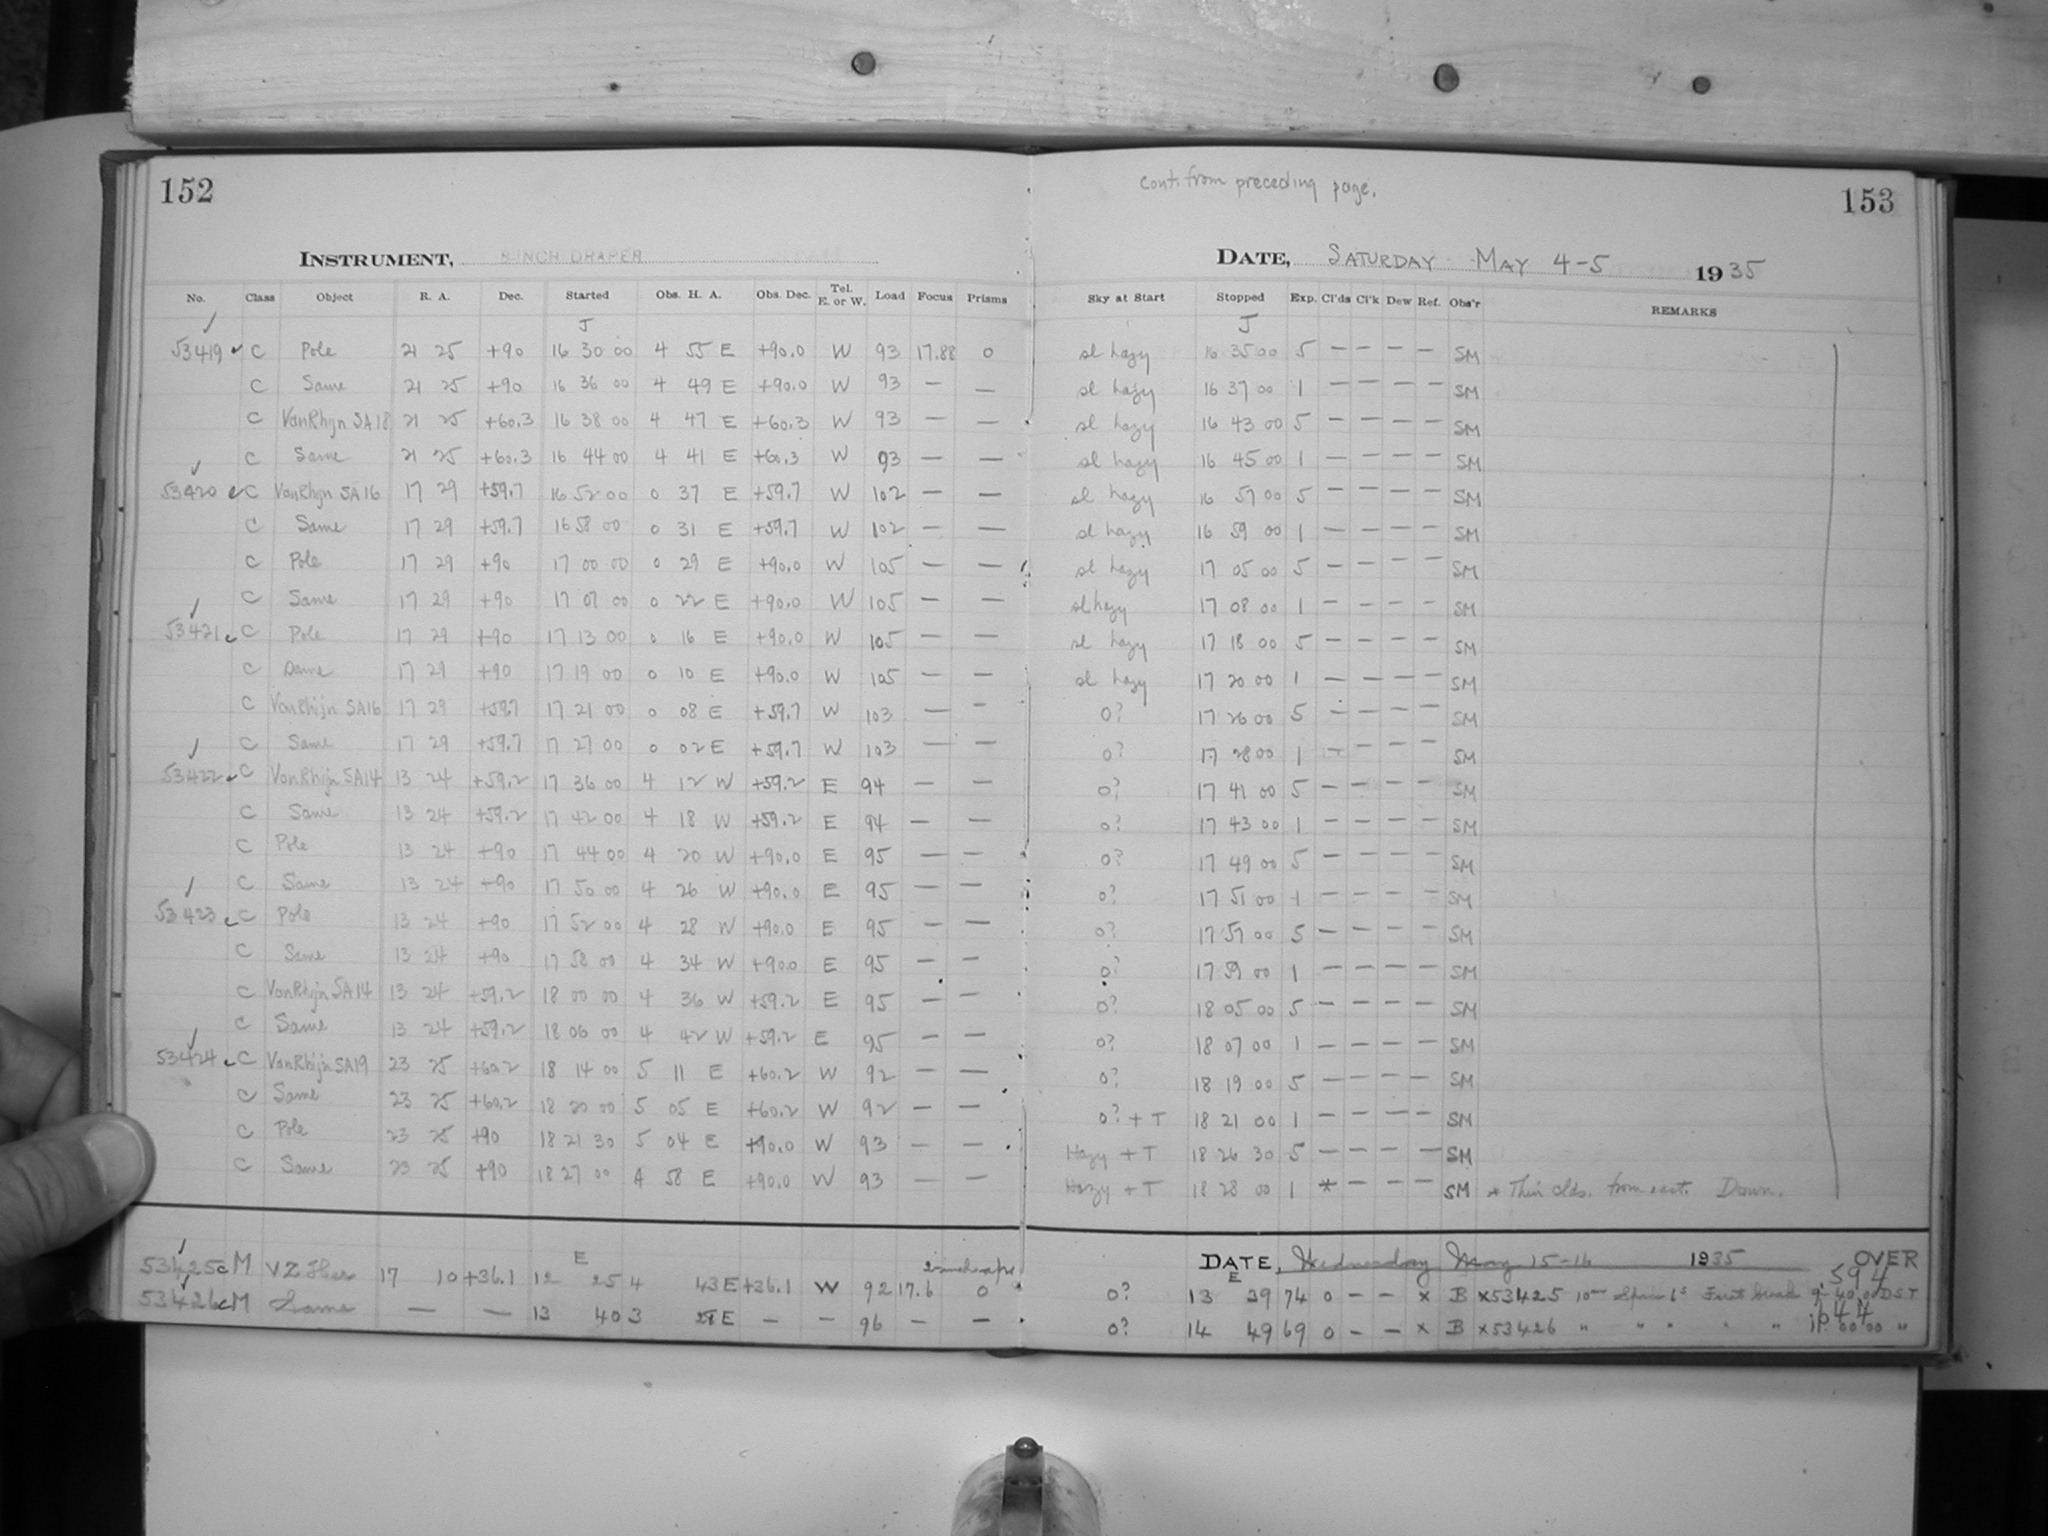 152
cont. from preceding page.
153
INSTRUMENT, 8-INCH DRAPER
DATE, SATURDAY MAY 4-5 1935
No. Class Object R. A. Dec. Started Obs. H. A. Obs. Dec. Tel. E. or W. Load Focus Prisms Sky at Start Stopped Exp. Cl'ds Cl'k Dew Ref. Obs'r REMARKS
J J
53419 ✓ C Pole 21 25 +90 16 30 00 4 55 E +90.0 W 93 17.88 0 sl hazy 16 35 00 5 — — — — SM
C Same 21 25 +90 16 36 00 4 49 E +90.0 W 93 — — sl hazy 16 37 00 1 — — — — SM
C VanRhijn SA18 21 25 +60.3 16 38 00 4 47 E +60.3 W 93 — — sl hazy 16 43 00 5 — — — — SM
C Same 21 25 +60.3 16 44 00 4 41 E +60.3 W 93 — — sl hazy 16 45 00 1 — — — — SM
53420 ✓ C VanRhijn SA16 17 29 +59.7 16 52 00 0 37 E +59.7 W 102 — — sl hazy 16 57 00 5 — — — — SM
C Same 17 29 +59.7 16 58 00 0 31 E +59.7 W 102 — — sl hazy 16 59 00 1 — — — — SM
C Pole 17 29 +90 17 00 00 0 29 E +90.0 W 105 — — sl hazy 17 05 00 5 — — — — SM
C Same 17 29 +90 17 07 00 0 22 E +90.0 W 105 — — sl hazy 17 08 00 1 — — — — SM
53421 ✓ C Pole 17 29 +90 17 13 00 0 16 E +90.0 W 105 — — sl hazy 17 18 00 5 — — — — SM
C Same 17 29 +90 17 19 00 0 10 E +90.0 W 105 — — sl hazy 17 20 00 1 — — — — SM
C VanRhijn SA16 17 29 +59.7 17 21 00 0 08 E +59.7 W 103 — — 0? 17 26 00 5 — — — — SM
C Same 17 29 +59.7 17 27 00 0 02 E +59.7 W 103 — — 0? 17 28 00 1 — — — — SM
53422 ✓ C VanRhijn SA14 13 24 +59.2 17 36 00 4 12 W +59.2 E 94 — — 0? 17 41 00 5 — — — — SM
C Same 13 24 +59.2 17 42 00 4 18 W +59.2 E 94 — — 0? 17 43 00 1 — — — — SM
C Pole 13 24 +90 17 44 00 4 20 W +90.0 E 95 — — 0? 17 49 00 5 — — — — SM
C Same 13 24 +90 17 50 00 4 26 W +90.0 E 95 — — 0? 17 51 00 1 — — — — SM
53423 ✓ C Pole 13 24 +90 17 52 00 4 28 W +90.0 E 95 — — 0? 17 57 00 5 — — — — SM
C Same 13 24 +90 17 58 00 4 34 W +90.0 E 95 — — 0? 17 59 00 1 — — — — SM
C VanRhijn SA14 13 24 +59.2 18 00 00 4 36 W +59.2 E 95 — — 0? 18 05 00 5 — — — — SM
C Same 13 24 +59.2 18 06 00 4 42 W +59.2 E 95 — — 0? 18 07 00 1 — — — — SM
53424 ✓ C VanRhijn SA19 23 25 +60.2 18 14 00 5 11 E +60.2 W 92 — — 0? 18 19 00 5 — — — — SM
C Same 23 25 +60.2 18 20 00 5 05 E +60.2 W 92 — — 0? + T 18 21 00 1 — — — — SM
C Pole 23 25 +90 18 21 30 5 04 E +90.0 W 93 — — Hazy + T 18 26 30 5 — — — — SM
C Same 23 25 +90 18 27 00 4 58 E +90.0 W 93 — — Hazy + T 18 28 00 1 * — — — SM * Thin clds. from east. Down.
DATE, Wednesday May 15-16 1935 OVER
E E 594
53425 c M VZ Her 17 10 +36.1 12 25 4 43 E +36.1 W 92 17.6 0 0? 13 39 74 0 — — x B x53425 10m Spir 6s First break 9 40 00 DST
53426 c M Same — — 13 40 3 28 E — — 96 — — 0? 14 49 69 0 — — x B x53426 " " " " "